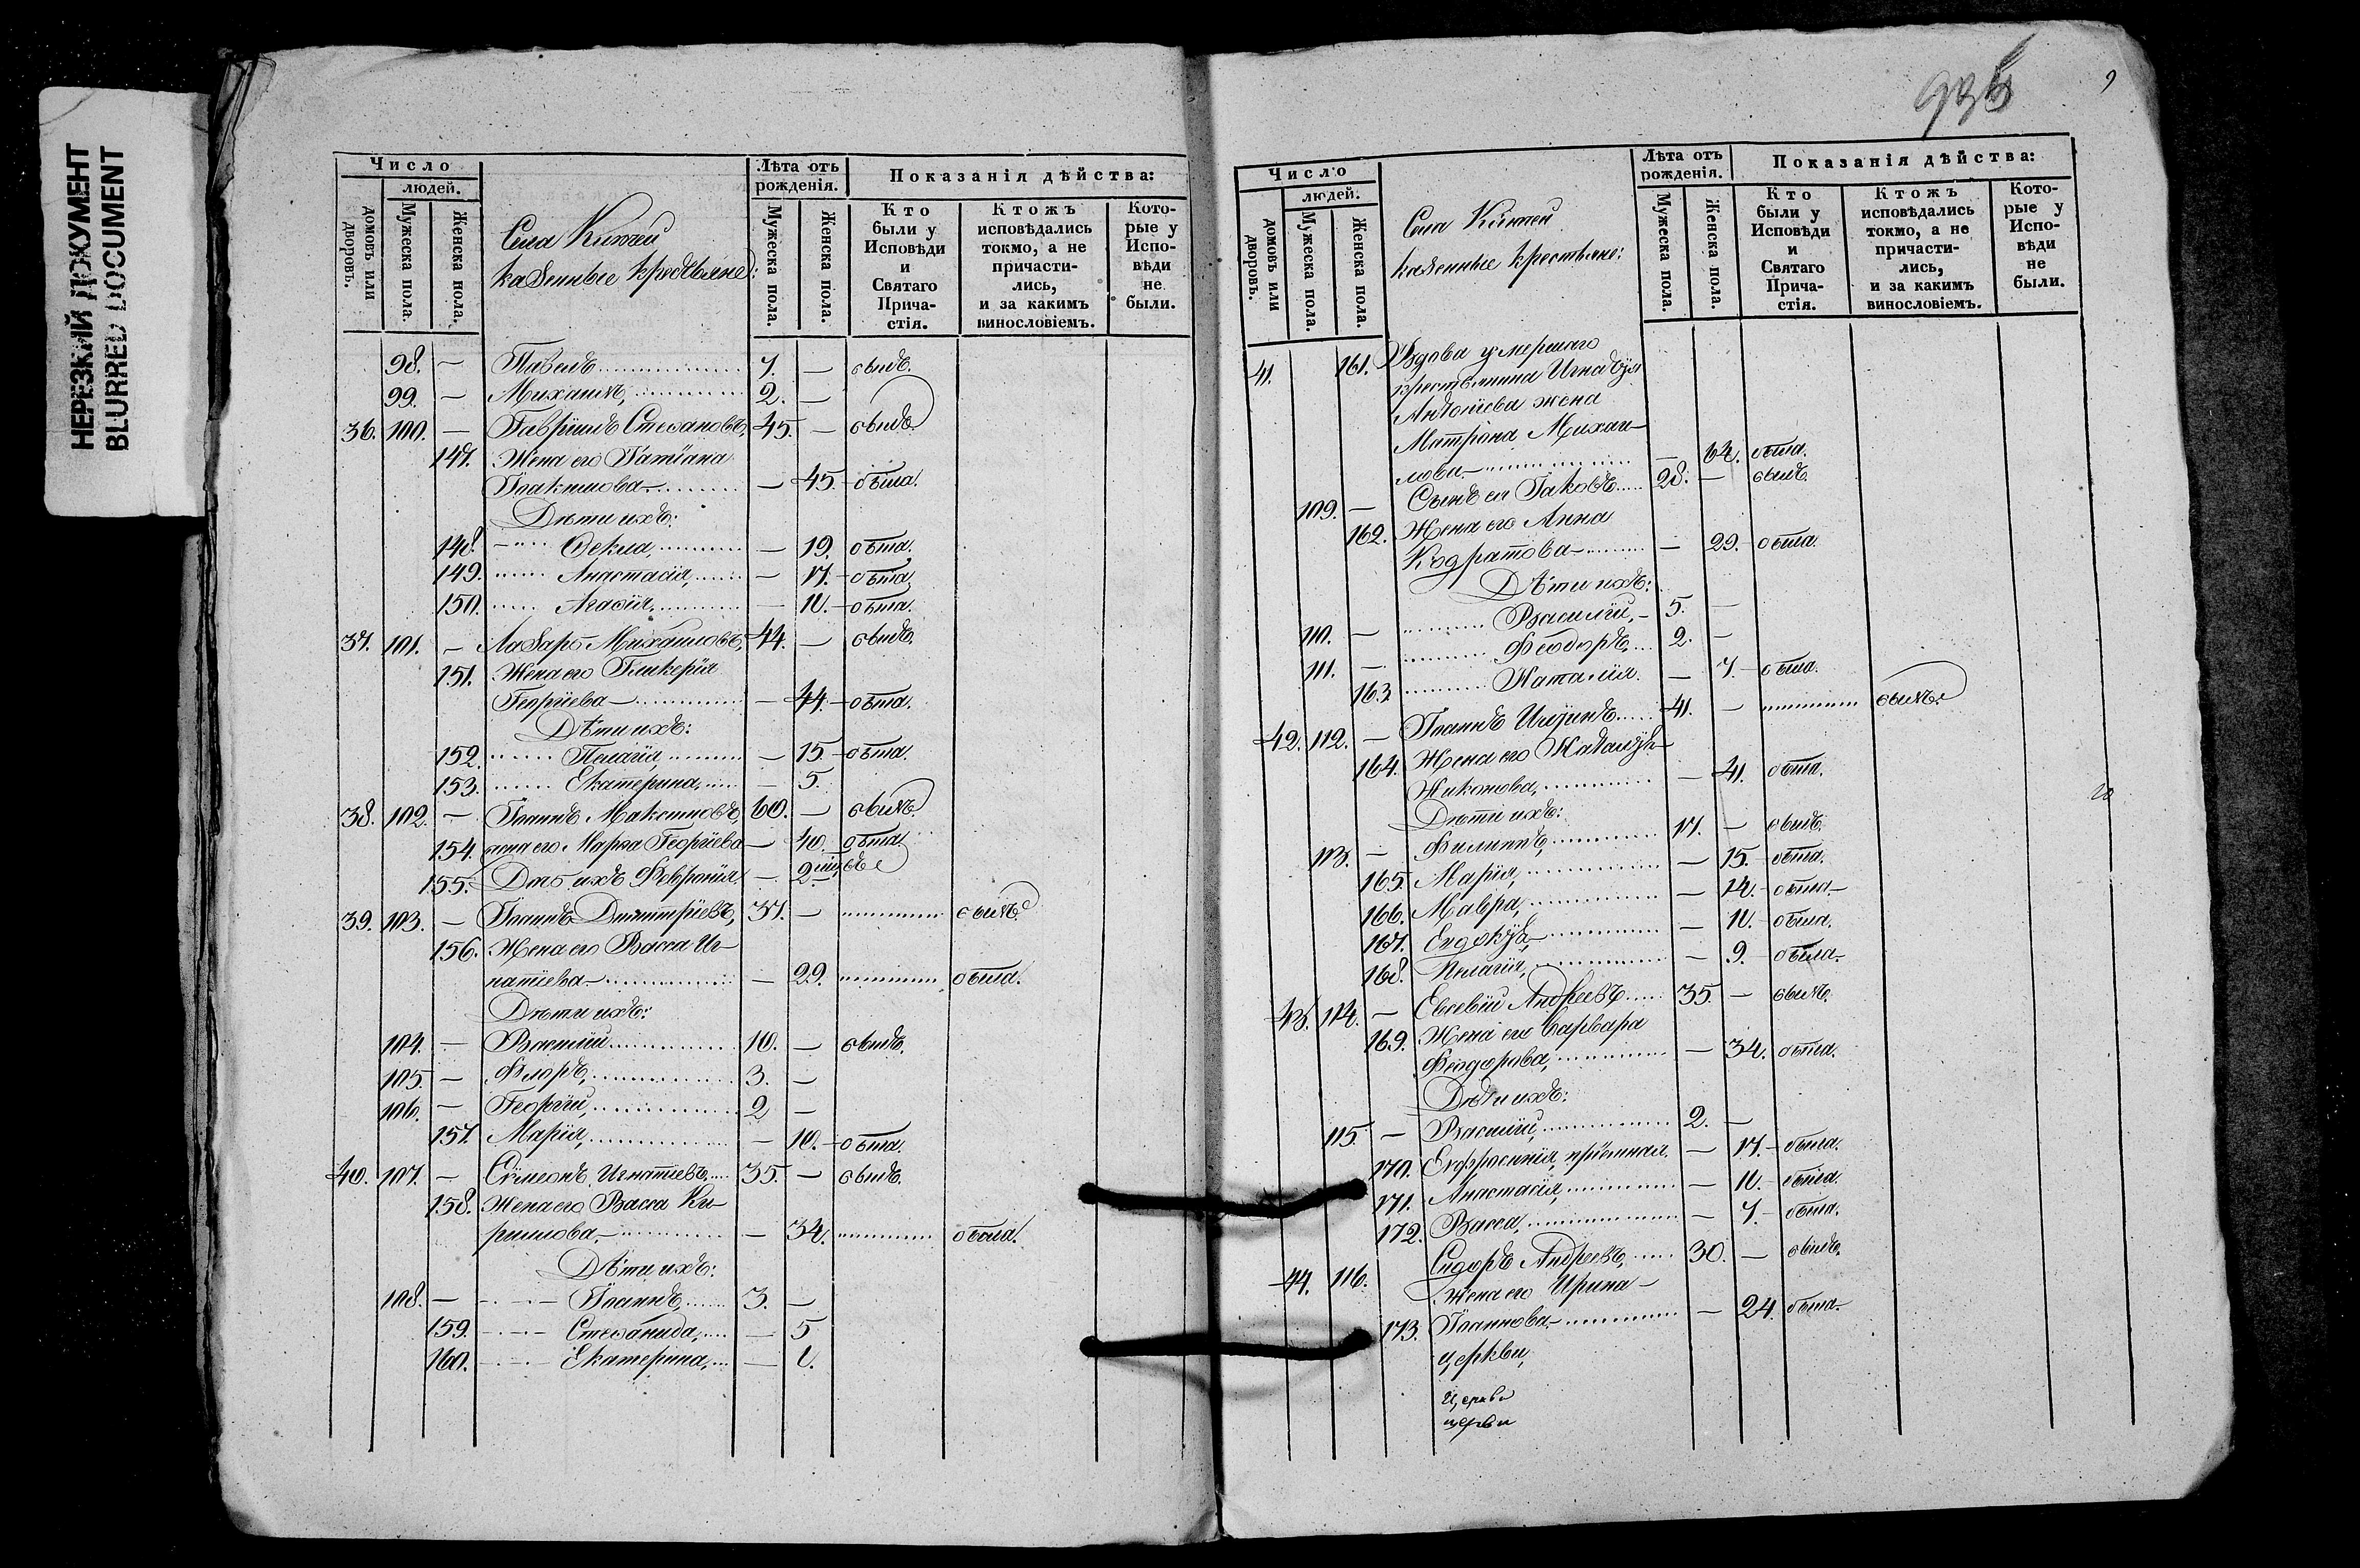 НЕРЕЗКИЙ ДОКУМЕНТ
BLURRED DOCUMENT
Число
людей.
домовъ или дворовъ.
Мужеска пола.
Женска пола.
Села
казенные крестьяне:
Лѣта отъ рожденія.
Мужеска пола.
Женска пола.
Показанія дѣйства:
Кто были у Исповѣди и Святаго Прича-стія.
Ктожъ исповѣдались токмо, а не причасти-лись, и за какимъ винословіемъ.
Кото-рые у Испо-вѣди не были.
98. — Павелъ 7. — былъ.
99. — Михаилъ, 2. —
36. 100. — Гавріилъ Стефановъ, 45. — былъ
147. Жена его Татіана
Іоакимова — — 45. — была.
Дѣти ихъ:
148. Ѳекла — 19. была.
149. Анастасія, — 17. — была.
150. Агафія, — 11. — была.
37. 101. — Лазарь Михаиловъ, 44. — былъ.
151. Жена его Гликерія
Георгіева — — 44. — была.
Дѣти ихъ:
152. Пелагія, — 15. — была.
153. Екатерина, — 5.
38. 102. — Іоаннъ Максимовъ, 60. — былъ.
154. жена его Марѳа Георгіева — 40. была.
155. Дочь ихъ Февронія — 2
39. 103. — Іоаннъ Димитріевъ, 37. — былъ.
156. Жена его Васса Иг-
натіева — — 29. была.
Дѣти ихъ:
104. — Василій 10. — былъ.
105. — Флоръ, 3. —
106. — Георгій, 2 —
157. Марія, — 10. — была.
40. 107. — Сѵмеонъ Игнатіевъ, 35. — былъ.
158. Жена его Васса Ки-
риллова, — — 34. была.
Дѣти ихъ:
108. — Іоаннъ, 3. —
159. Стефанида, — 5
160. Екатерина, — 1.
Число
людей.
домовъ или дворовъ.
Мужеска пола.
Женска пола.
Села
казенные крестьяне:
Лѣта отъ рожденія.
Мужеска пола.
Женска пола.
Показанія дѣйства:
Кто были у Исповѣди и Святаго Прича-стія.
Ктожъ исповѣдались токмо, а не причасти-лись, и за какимъ винословіемъ.
Кото-рые у Испо-вѣди не были.
41. 161. Вдова умершаго
крестьянина Игнатія
жена
Матрона Михаи-
лова — — 64. была.
109. — Сынъ ея Іаковъ 28. — былъ.
162. Жена его Анна
Кодратова — — 29. была.
Дѣти ихъ:
110. — Василій, — 5. —
111. — Ѳеодоръ, 2. —
163. Наталія. — 7. — была.
42. 112. — Іоаннъ 41. — былъ.
164. Жена его Наталія
Никонова, — 41. была.
Дѣти ихъ:
113. — Филиппъ, 17. — былъ.
165. Марія, — 15. — была.
166. Мавра, — 14. — была. —
167. — 11. — была.
168. Пелагія, — 9. — была. —
43. 114. — Евсевій Андреевъ 35. — былъ.
169. Жена его Варвара
Ѳеодорова, — 34. была.
Дѣти ихъ:
115. — Василій, 2. —
170. Евфросинія, пріемная. — 17. — была.
171. Анастасія, — 11. — была.
172. Васса, — 7. — была.
44. 116. Сидоръ Андреевъ, 30. — былъ.
Жена его Ирина
173. Іоаннова — — 24. была. —
церкви,
церкви
церкви